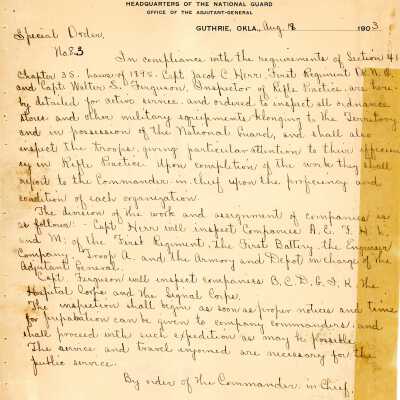 HEADQUARTERS OF THE NATIONAL GUARD
OFFICE OF THE ADJUTANT-GENERAL
GUTHRIE, OKLA., Aug 18 1903
Special Order,
No. 83
In compliance with the requirements of Section 41
Chapter 35. Laws of 1895. Capt. Jacob C. Herr, First Regiment O.N.G.
and Capt. Walter S. Ferguson, Inspector of Rifle Practice, are here-
by detailed for active service and ordered to inspect all ordnance
stores and other military equipments belonging to the Territory
and in possession of the National Guard, and shall also
inspect the troops, giving particular attention to their efficien-
cy in Rifle Practice. Upon completion of the work they shall
report to the Commander in Chief upon the proficiency and
condition of each organization.
The division of the work and assignment of companies is
as follows:- Capt. Herr will inspect Companies A. E. F. H. L.
and M. of the First Regiment, the First Battery, the Engineer
Company, Troop A. and the Armory and Depot in charge of the
Adjutant General.
Capt. Ferguson will inspect companies B, C, D, G, I, K the
Hospital Corps and the Signal Corps.
The inspection shall begin as soon as proper notices and time
for preparation can be given to company commanders, and
shall proceed with such expedition as may be possible.
The service and travel enjoined are necessary for the
public service.
By order of the Commander in Chief,